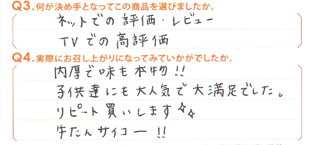 Q3.何が決め手となってこの商品を選びましたか。
ネットでの評価・レビュー
TVでの高評価
Q4.実際にお召し上がりになってみていかがでしたか。
内厚で味も本物!!
子供達にも大人気で大満足でした。
リピート買いします✨
牛たんサイコー!!